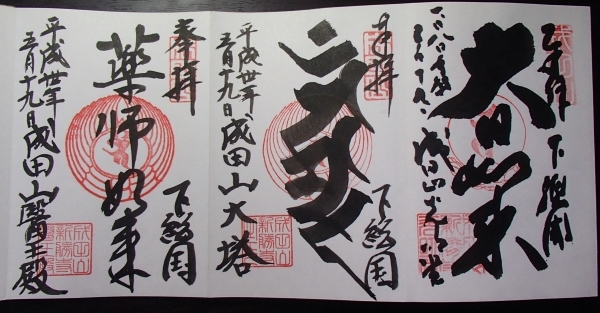 奉拝
下総国
大日如来
成田山光明堂
奉拝
下総国
平成卅年
五月十九日成田山大塔
奉拝
下総国
薬師如来
平成卅年
五月十九日成田山醫王殿
成田山
新勝寺